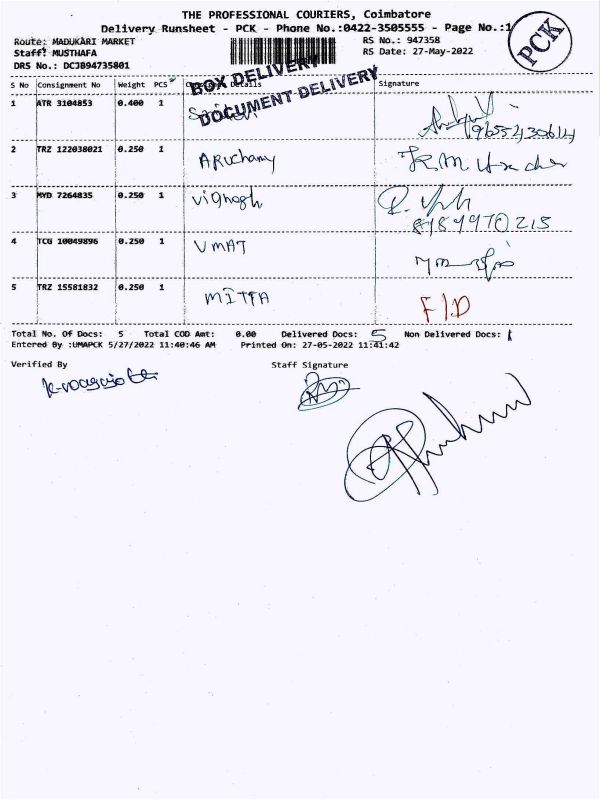 THE PROFESSIONAL COURIERS, Coimbatore
Delivery Runsheet - PCK - Phone No.:0422-3505555 - Page No.:1
PCK
Route: MADUKARI MARKET
RS No.: 947358
Staff: MUSTHAFA
RS Date: 27-May-2022
DRS No.: DCJB94735801
BOX DELIVERY
DOCUMENT DELIVERY
S No Consignment No Weight PCS Details Signature
1 ATR 3104853 0.400 1
9655430614
2 TRZ 122038021 0.250 1 ARUchamy
3 MYD 7264835 0.250 1 Vighnesh
4 TCG 10049896 0.250 1 UMAT
5 TRZ 15581832 0.250 1 MITTA F/D
Total No. Of Docs: 5 Total COD Amt: 0.00 Delivered Docs: 5 Non Delivered Docs: 1
Entered By :UMAPCK 5/27/2022 11:40:46 AM Printed On: 27-05-2022 11:41:42
Verified By Staff Signature